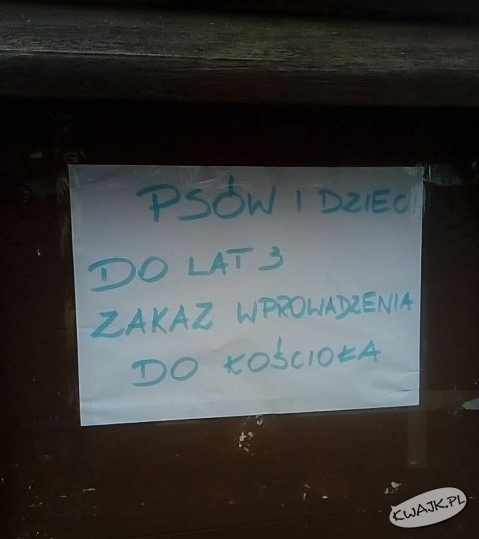 PSÓW I DZIECI
DO LAT 3
ZAKAZ WPROWADZENIA
DO KOŚCIOŁA
KWAJK.PL